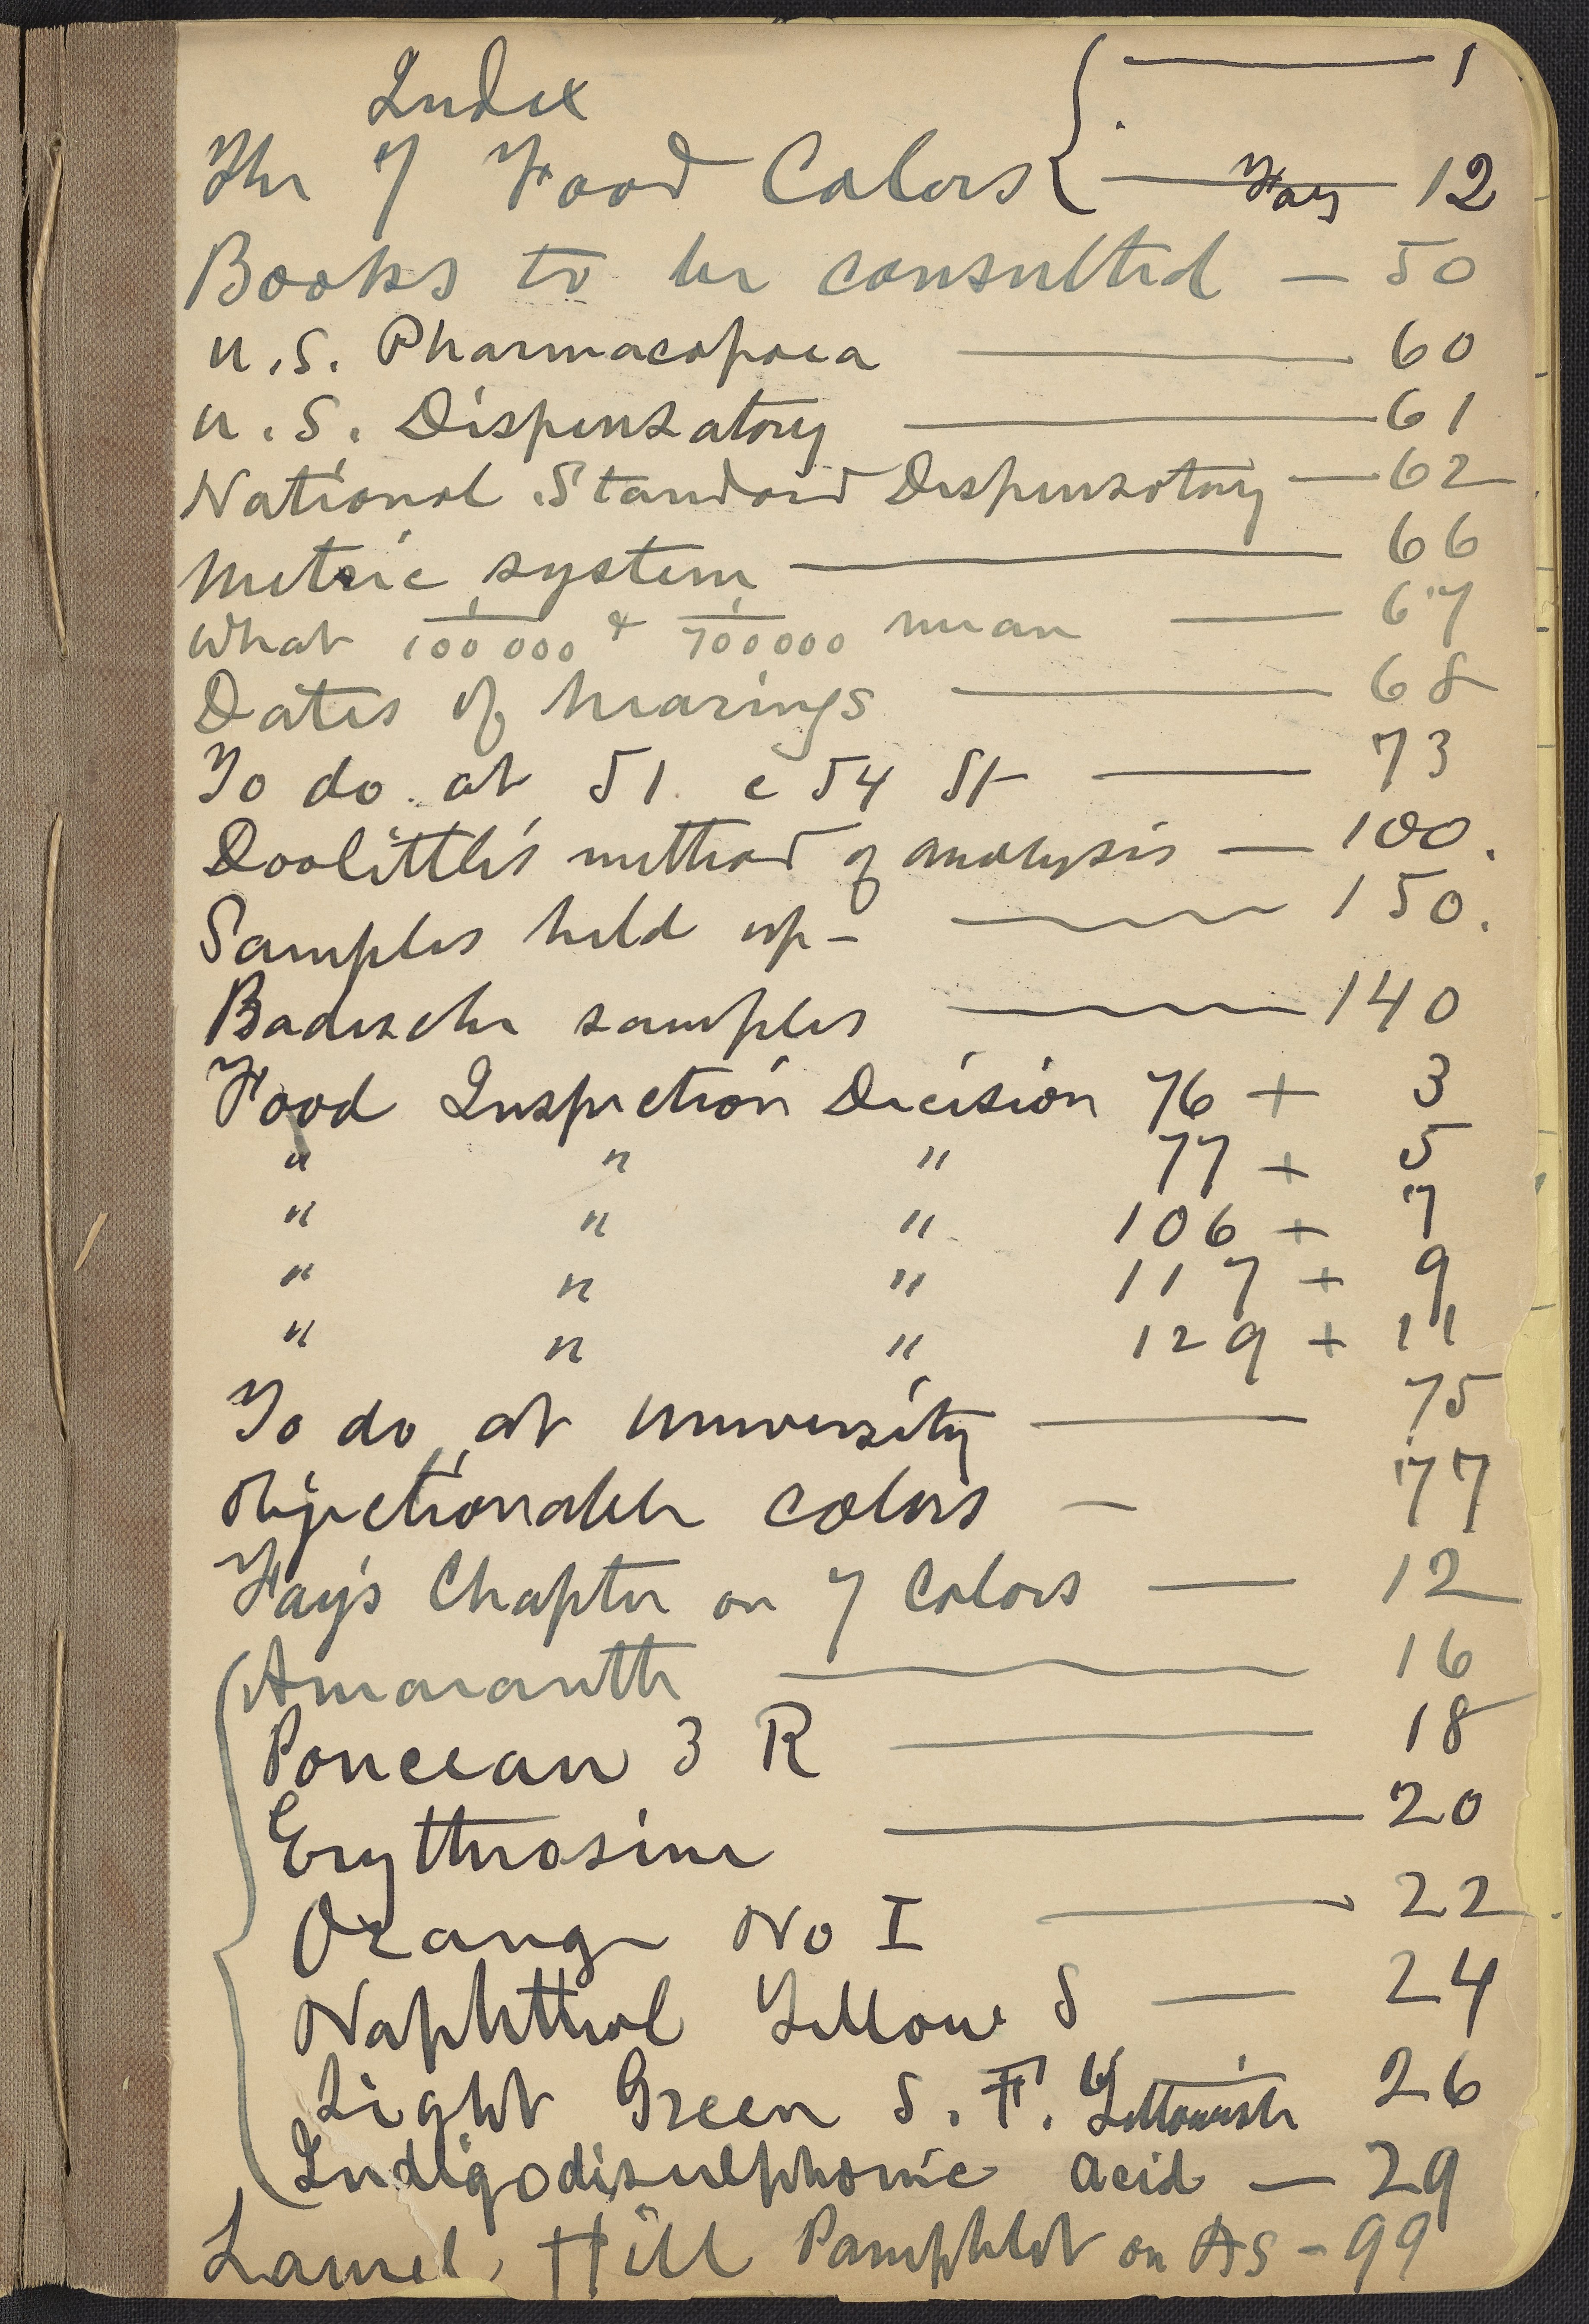 Index { — 1
The 7 Food Colors { — Hay 12
Books to be consulted — 50
U.S. Pharmacopoea — 60
U.S. Dispensatory — 61
National Standard Dispensatory — 62
Metric system — 66
What 1/100000 & 1/700000 mean — 67
Dates of hearings — 68
To do at 51 e 54 St — 73
Doolittle's method of analysis — 100.
Samples held up — 150.
Badische samples — 140
Food Inspection Decision 76 + 3
" " " 77 + 5
" " " 106 + 7
" " " 117 + 9
" " " 129 + 11
To do at University — 75
Objectionable colors — 77
Hay's Chapter on 7 Colors — 12
Amaranth — 16
Ponceau 3 R — 18
Erythrosine — 20
Orange No I — 22
Naphthol Yellow S — 24
Light Green S. F. Yellowish 26
Indigodisulphonic acid — 29
Laurel Hill Pamphlet on As - 99